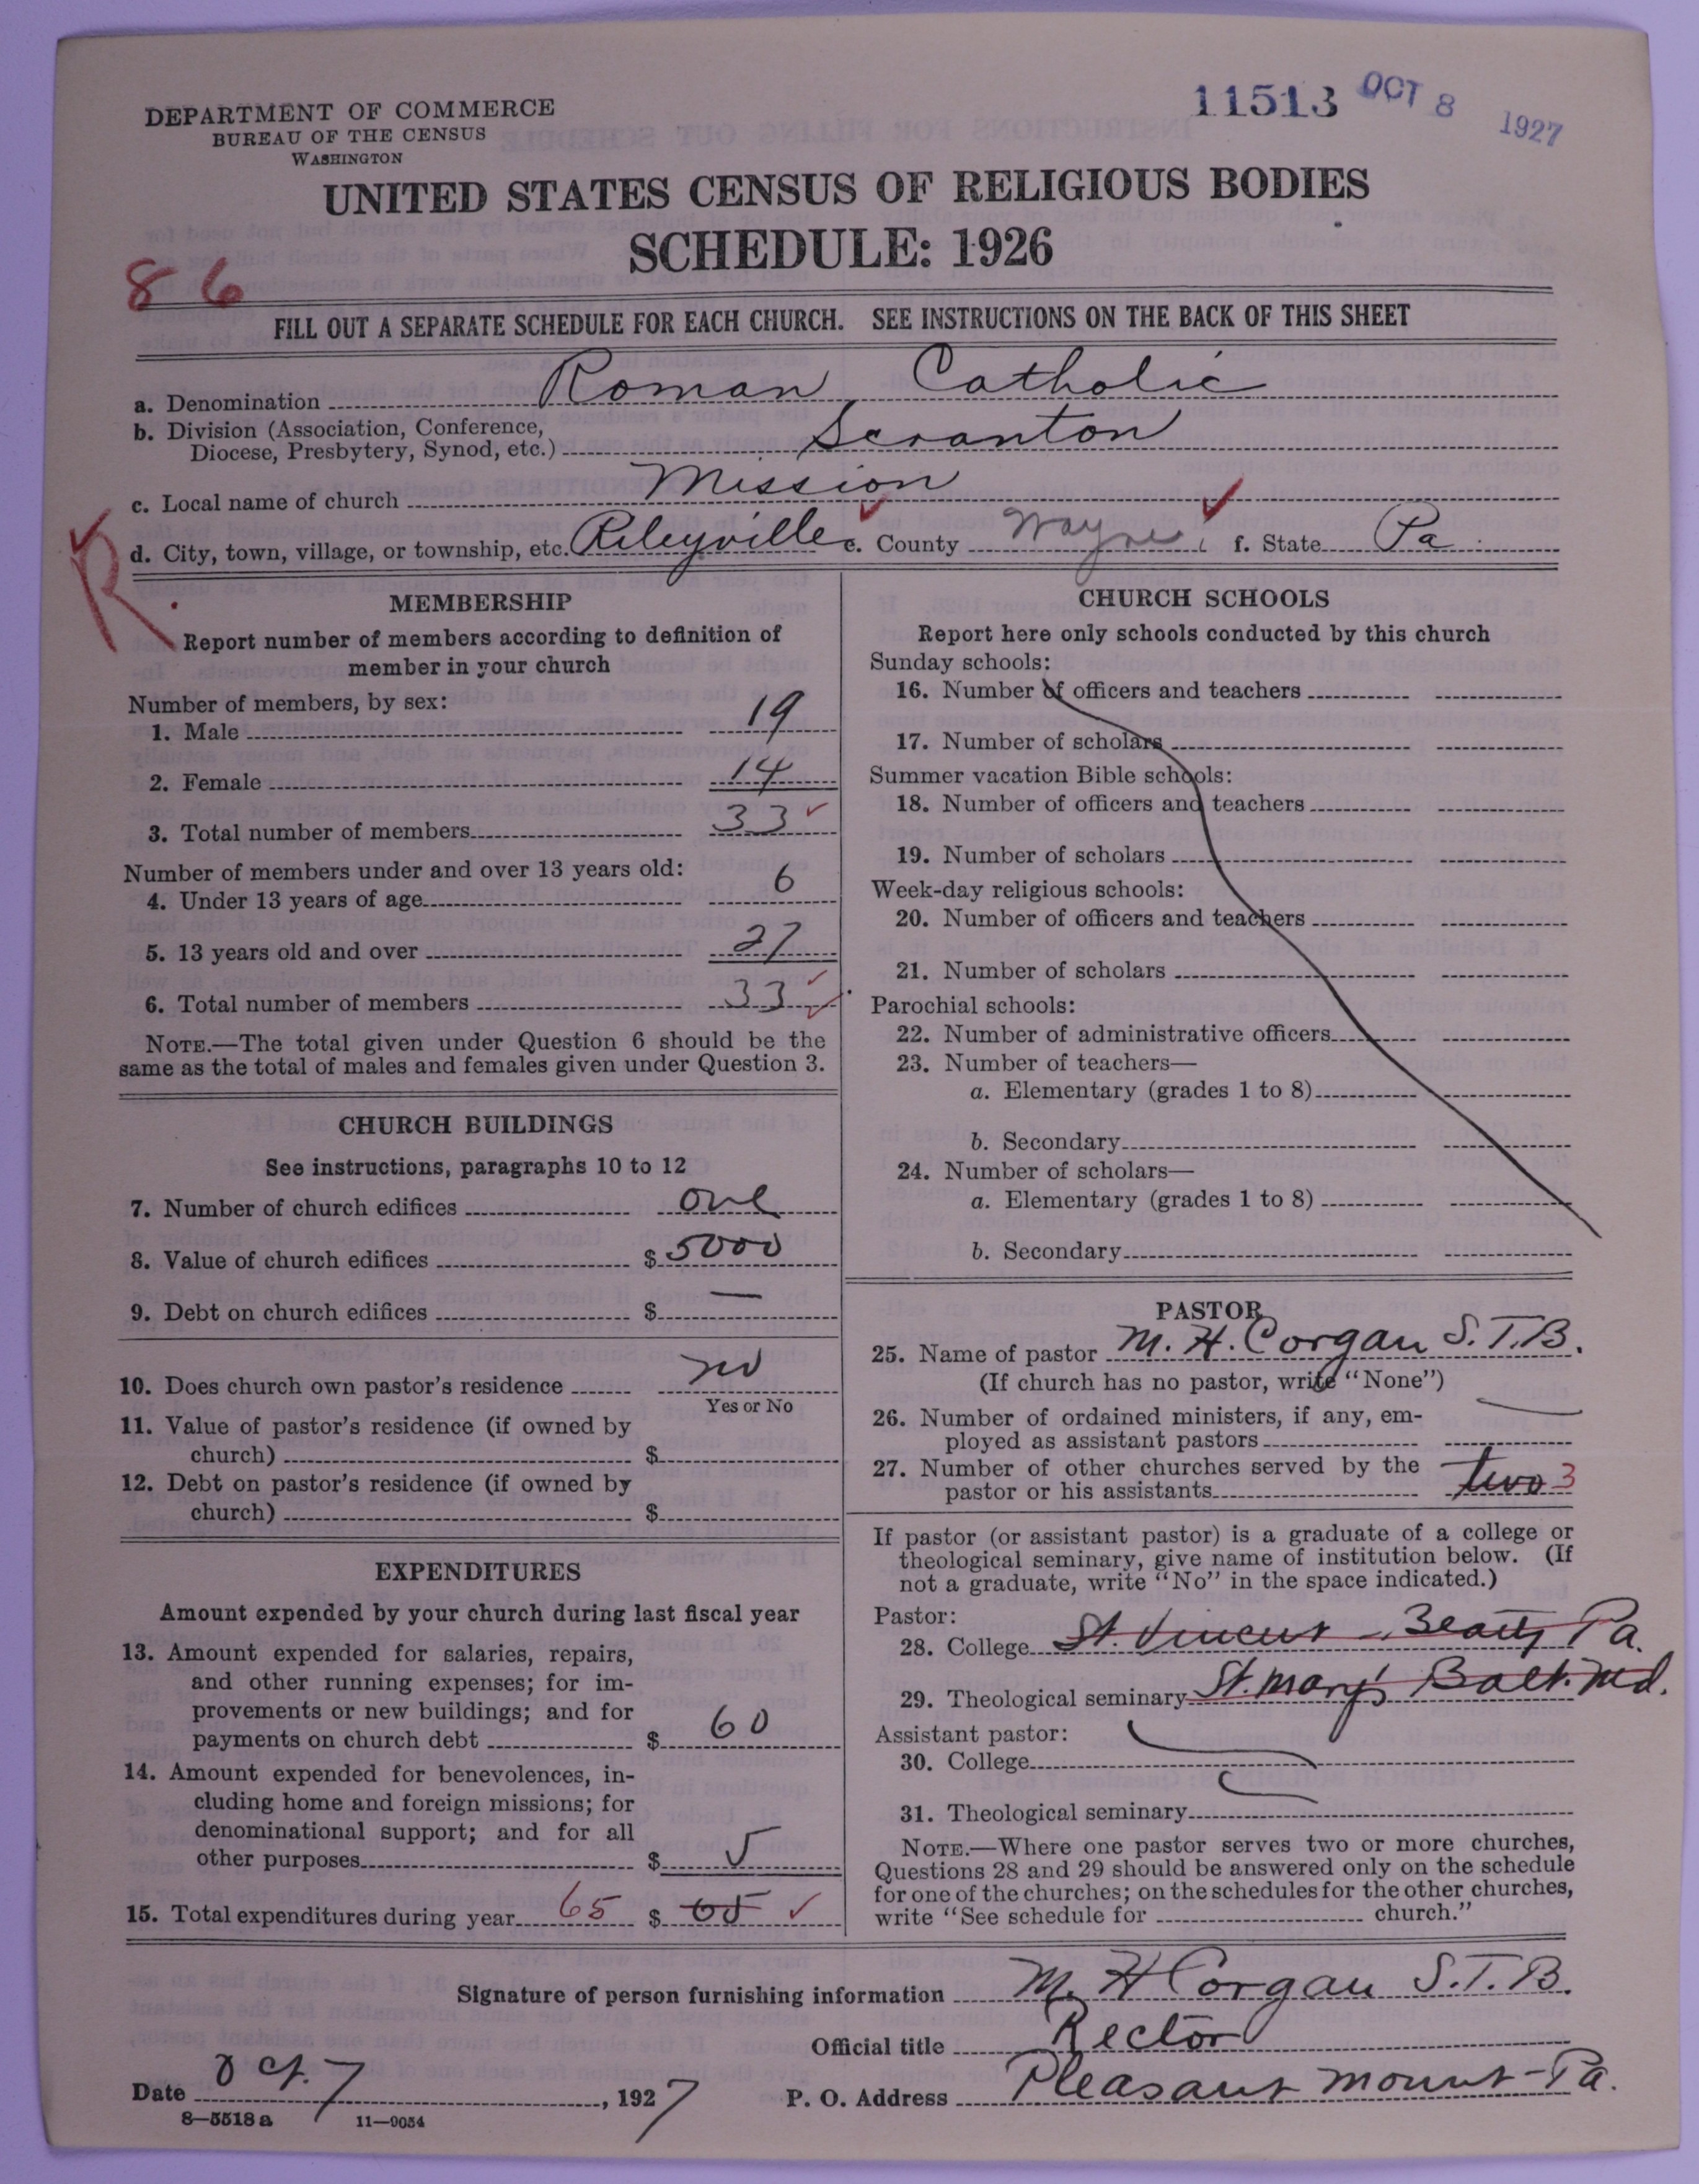 DEPARTMENT OF COMMERCE
BUREAU OF THE CENSUS
WASHINGTON
11513 OCT 8 1927
UNITED STATES CENSUS OF RELIGIOUS BODIES
SCHEDULE: 1926
86
FILL OUT A SEPARATE SCHEDULE FOR EACH CHURCH. SEE INSTRUCTIONS ON THE BACK OF THIS SHEET
a. Denomination Roman Catholic
b. Division (Association, Conference, Diocese, Presbytery, Synod, etc.) Scranton
c. Local name of church Mission
d. City, town, village, or township, etc. Rileyville e. County Wayne f. State Pa
R
MEMBERSHIP
Report number of members according to definition of
member in your church
Number of members, by sex:
1. Male 19
2. Female 14
3. Total number of members 33 ✓
Number of members under and over 13 years old:
4. Under 13 years of age 6
5. 13 years old and over 27
6. Total number of members 33 ✓
NOTE.—The total given under Question 6 should be the
same as the total of males and females given under Question 3.
CHURCH BUILDINGS
See instructions, paragraphs 10 to 12
7. Number of church edifices one
8. Value of church edifices $ 5000
9. Debt on church edifices $ —
10. Does church own pastor's residence no
Yes or No
11. Value of pastor's residence (if owned by
church) $
12. Debt on pastor's residence (if owned by
church) $
EXPENDITURES
Amount expended by your church during last fiscal year
13. Amount expended for salaries, repairs,
and other running expenses; for im-
provements or new buildings; and for
payments on church debt $ 60
14. Amount expended for benevolences, in-
cluding home and foreign missions; for
denominational support; and for all
other purposes $ 5
15. Total expenditures during year 65 $ 65 ✓
CHURCH SCHOOLS
Report here only schools conducted by this church
Sunday schools:
16. Number of officers and teachers
17. Number of scholars
Summer vacation Bible schools:
18. Number of officers and teachers
19. Number of scholars
Week-day religious schools:
20. Number of officers and teachers
21. Number of scholars
Parochial schools:
22. Number of administrative officers
23. Number of teachers—
a. Elementary (grades 1 to 8)
b. Secondary
24. Number of scholars—
a. Elementary (grades 1 to 8)
b. Secondary
PASTOR
25. Name of pastor M. H. Corgan S.T.B.
(If church has no pastor, write "None")
26. Number of ordained ministers, if any, em-
ployed as assistant pastors —
27. Number of other churches served by the
pastor or his assistants two 3
If pastor (or assistant pastor) is a graduate of a college or
theological seminary, give name of institution below. (If
not a graduate, write "No" in the space indicated.)
Pastor:
28. College St. Vincent - Beatty Pa.
29. Theological seminary St. Mary's Balt. Md.
Assistant pastor:
30. College
31. Theological seminary
NOTE.—Where one pastor serves two or more churches,
Questions 28 and 29 should be answered only on the schedule
for one of the churches; on the schedules for the other churches,
write "See schedule for church."
Signature of person furnishing information M. H Corgan S.T.B.
Official title Rector
Date Oct. 7, 1927 P. O. Address Pleasant Mount - Pa.
8—5518 a 11—9054